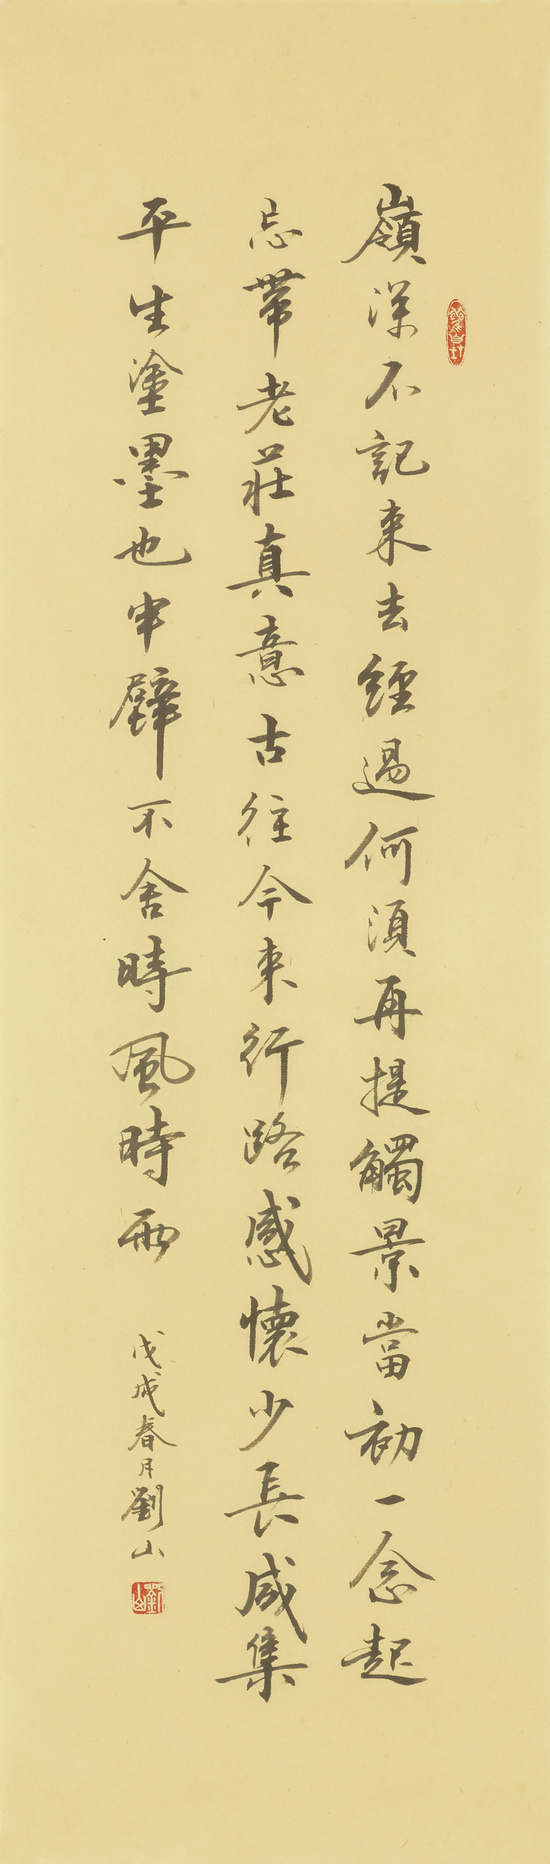 嶺深不記来去經過何須再提觸景當初一念起
忌帶老莊真意古往今来行路感懷少長咸集
平生塗墨也辟不舍時風時雨
戊戌春月劉山